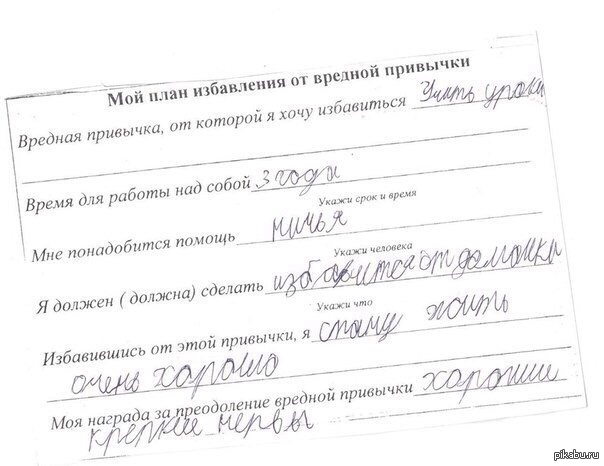 Мой план избавления от вредной привычки
Вредная привычка, от которой я хочу избавиться Учить уроки
Время для работы над собой 3 года
Укажи срок и время
Мне понадобится помощь ничья
Укажи человека
Я должен ( должна) сделать избавится от домашки
Укажи что
Избавившись от этой привычки, я стану жить
очень хорошо
Моя награда за преодоление вредной привычки хорошие
крепкие нервы
pikabu.ru